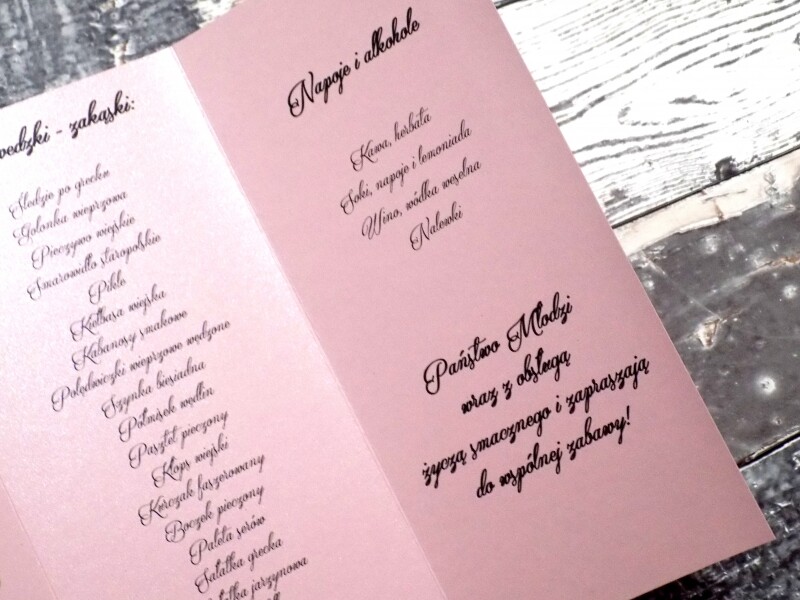 zakąski:
Śledzie po grecku
Golonka wieprzowa
Pieczywo wiejskie
Smarowidło staropolskie
Pikle
Kiełbasa wiejska
Kabanosy smakowe
Polędwiczki wieprzowe wędzone
Szynka biesiadna
Półmisek wędlin
Pasztet pieczony
Klops wiejski
Kurczak faszerowany
Boczek pieczony
Paleta serów
Sałatka grecka
jarzynowa
Napoje i alkohole
Kawa, herbata
Soki, napoje i lemoniada
Wino, wódka weselna
Nalewki
Państwo Młodzi
wraz z obsługą
życzą smacznego i zapraszają
do wspólnej zabawy!